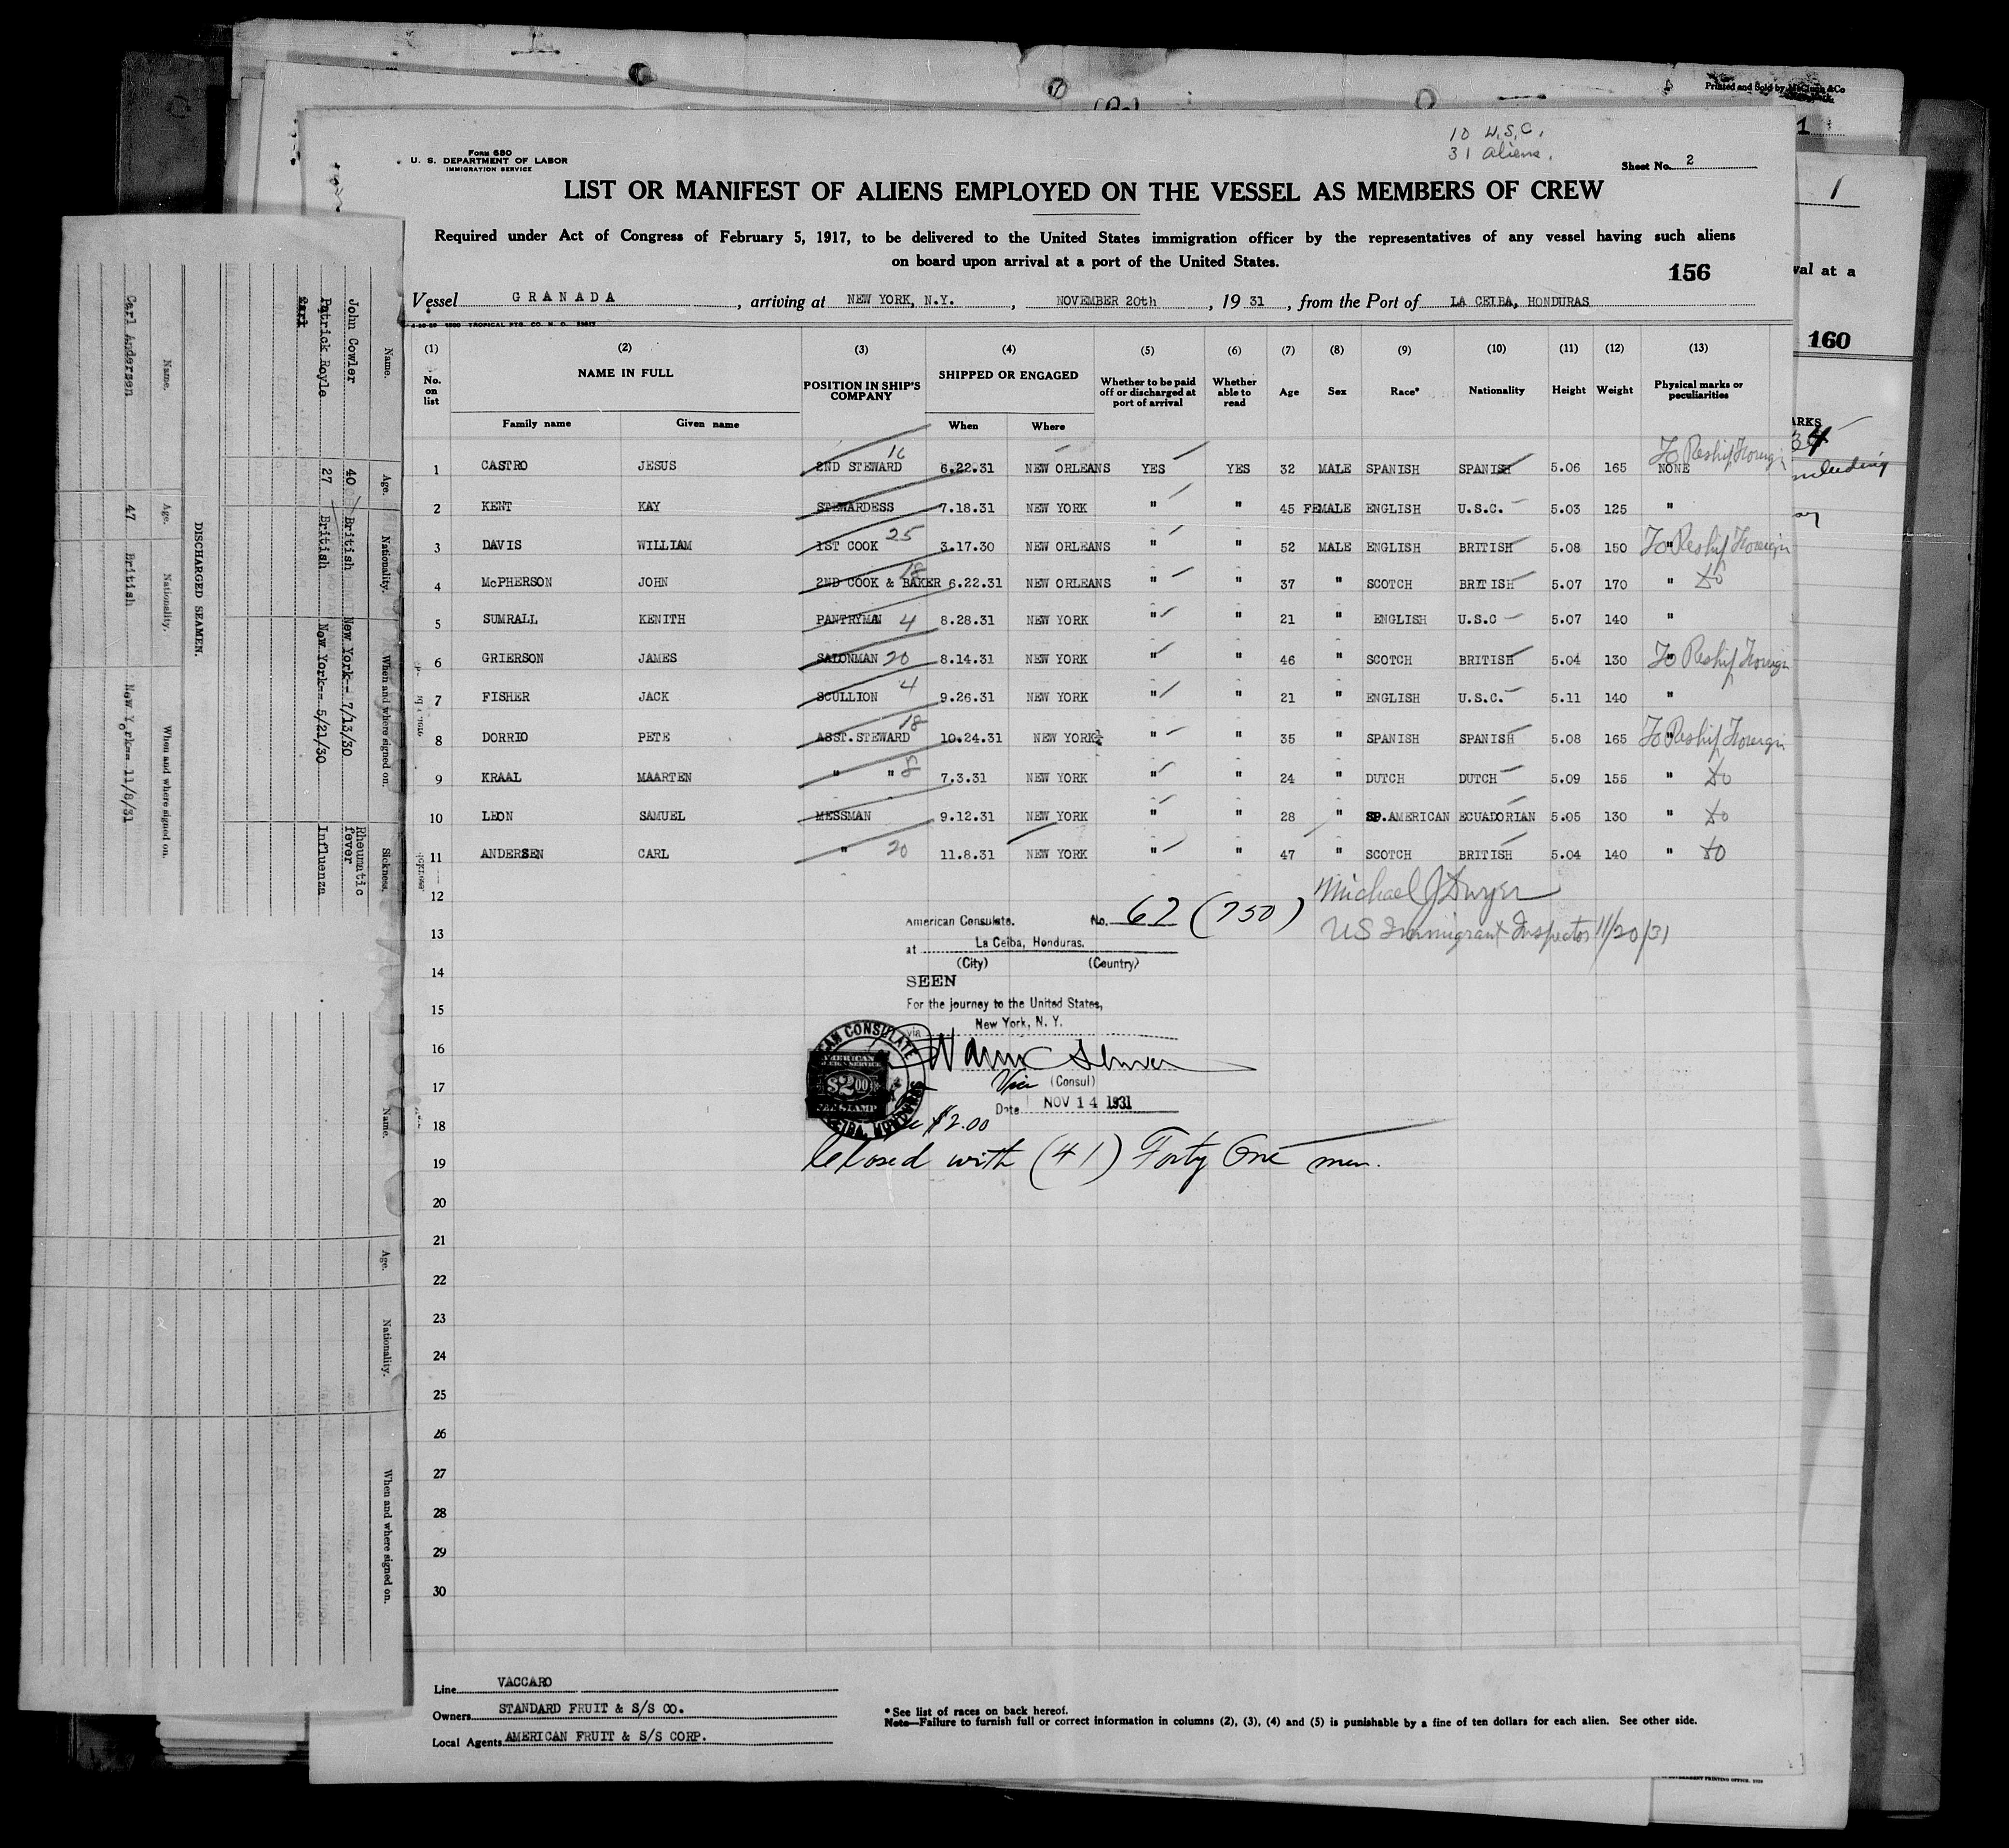 Printed and Sold by
1
10 U.S.C.
31 aliens.
FORM 680
U. S. DEPARTMENT OF LABOR
IMMIGRATION SERVICE
Sheet No. 2
LIST OR MANIFEST OF ALIENS EMPLOYED ON THE VESSEL AS MEMBERS OF CREW
Required under Act of Congress of February 5, 1917, to be delivered to the United States immigration officer by the representatives of any vessel having such aliens
on board upon arrival at a port of the United States.
156
Vessel GRANADA, arriving at NEW YORK, N.Y., NOVEMBER 20th, 1931, from the Port of LA CEIBA, HONDURAS
(1) (2) (3) (4) (5) (6) (7) (8) (9) (10) (11) (12) (13)
No. on list NAME IN FULL POSITION IN SHIP'S COMPANY SHIPPED OR ENGAGED Whether to be paid off or discharged at port of arrival Whether able to read Age Sex Race* Nationality Height Weight Physical marks or peculiarities
Family name Given name When Where
1 CASTRO JESUS 2ND STEWARD 16 6.22.31 NEW ORLEANS YES YES 32 MALE SPANISH SPANISH 5.06 165 NONE To Reship Foreign
2 KENT KAY STEWARDESS 7.18.31 NEW YORK " " 45 FEMALE ENGLISH U.S.C. 5.03 125 "
3 DAVIS WILLIAM 1ST COOK 25 3.17.30 NEW ORLEANS " " 52 MALE ENGLISH BRITISH 5.08 150 " To Reship Foreign
4 McPHERSON JOHN 2ND COOK & BAKER 18 6.22.31 NEW ORLEANS " " 37 " SCOTCH BRITISH 5.07 170 " do
5 SUMRALL KENITH PANTRYMAN 4 8.28.31 NEW YORK " " 21 " ENGLISH U.S.C 5.07 140 "
6 GRIERSON JAMES SALONMAN 20 8.14.31 NEW YORK " " 46 " SCOTCH BRITISH 5.04 130 " To Reship Foreign
7 FISHER JACK SCULLION 4 9.26.31 NEW YORK " " 21 " ENGLISH U.S.C. 5.11 140 "
8 DORRIO PETE ASST.STEWARD 18 10.24.31 NEW YORK " " 35 " SPANISH SPANISH 5.08 165 " To Reship Foreign
9 KRAAL MAARTEN " " 8 7.3.31 NEW YORK " " 24 " DUTCH DUTCH 5.09 155 " do
10 LEON SAMUEL MESSMAN 9.12.31 NEW YORK " " 28 " SP.AMERICAN ECUADORIAN 5.05 130 " do
11 ANDERSEN CARL " 20 11.8.31 NEW YORK " " 47 " SCOTCH BRITISH 5.04 140 " do
12
13
14
15
16
17
18
19
20
21
22
23
24
25
26
27
28
29
30
Michael J Dwyer
US Immigrant Inspector 11/20/31
American Consulate. No. 62 (750)
at La Ceiba, Honduras.
(City) (Country)
SEEN
For the journey to the United States,
via New York, N. Y.
Vice (Consul)
Date NOV 14 1931
$2.00
Closed with (41) Forty One men.
Line VACCARO
Owners STANDARD FRUIT & S/S CO.
Local Agents AMERICAN FRUIT & S/S CORP.
*See list of races on back hereof.
Note—Failure to furnish full or correct information in columns (2), (3), (4) and (5) is punishable by a fine of ten dollars for each alien. See other side.
Name. Age. Nationality. When and where signed on. Sickness.
John Cowler 40 British New York-- 7/13/30 Rheumatic fever
Patrick Royle 27 British New York-- 5/21/30 Influenza
Carl
DISCHARGED SEAMEN.
Name. Age. Nationality. When and where signed on.
Carl Andersen 47 British New York-- 11/8/31
Name. Age. Nationality. When and where signed on.
1
val at a
160
ARKS
including